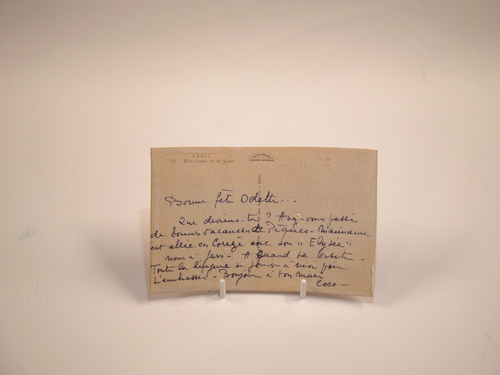 PARIS
Notre-Dame et la Seine
Bonne fête Odette...
Que deviens-tu ? Avez-vous passé
de bonnes vacances de Pâques. Maimaime
est allée en Corrèze avec son "Elysée"
nous à Jars - A quand ta visite -
Toute la
à pour
t'embrasser - Bonjour à ton mari
Coco -